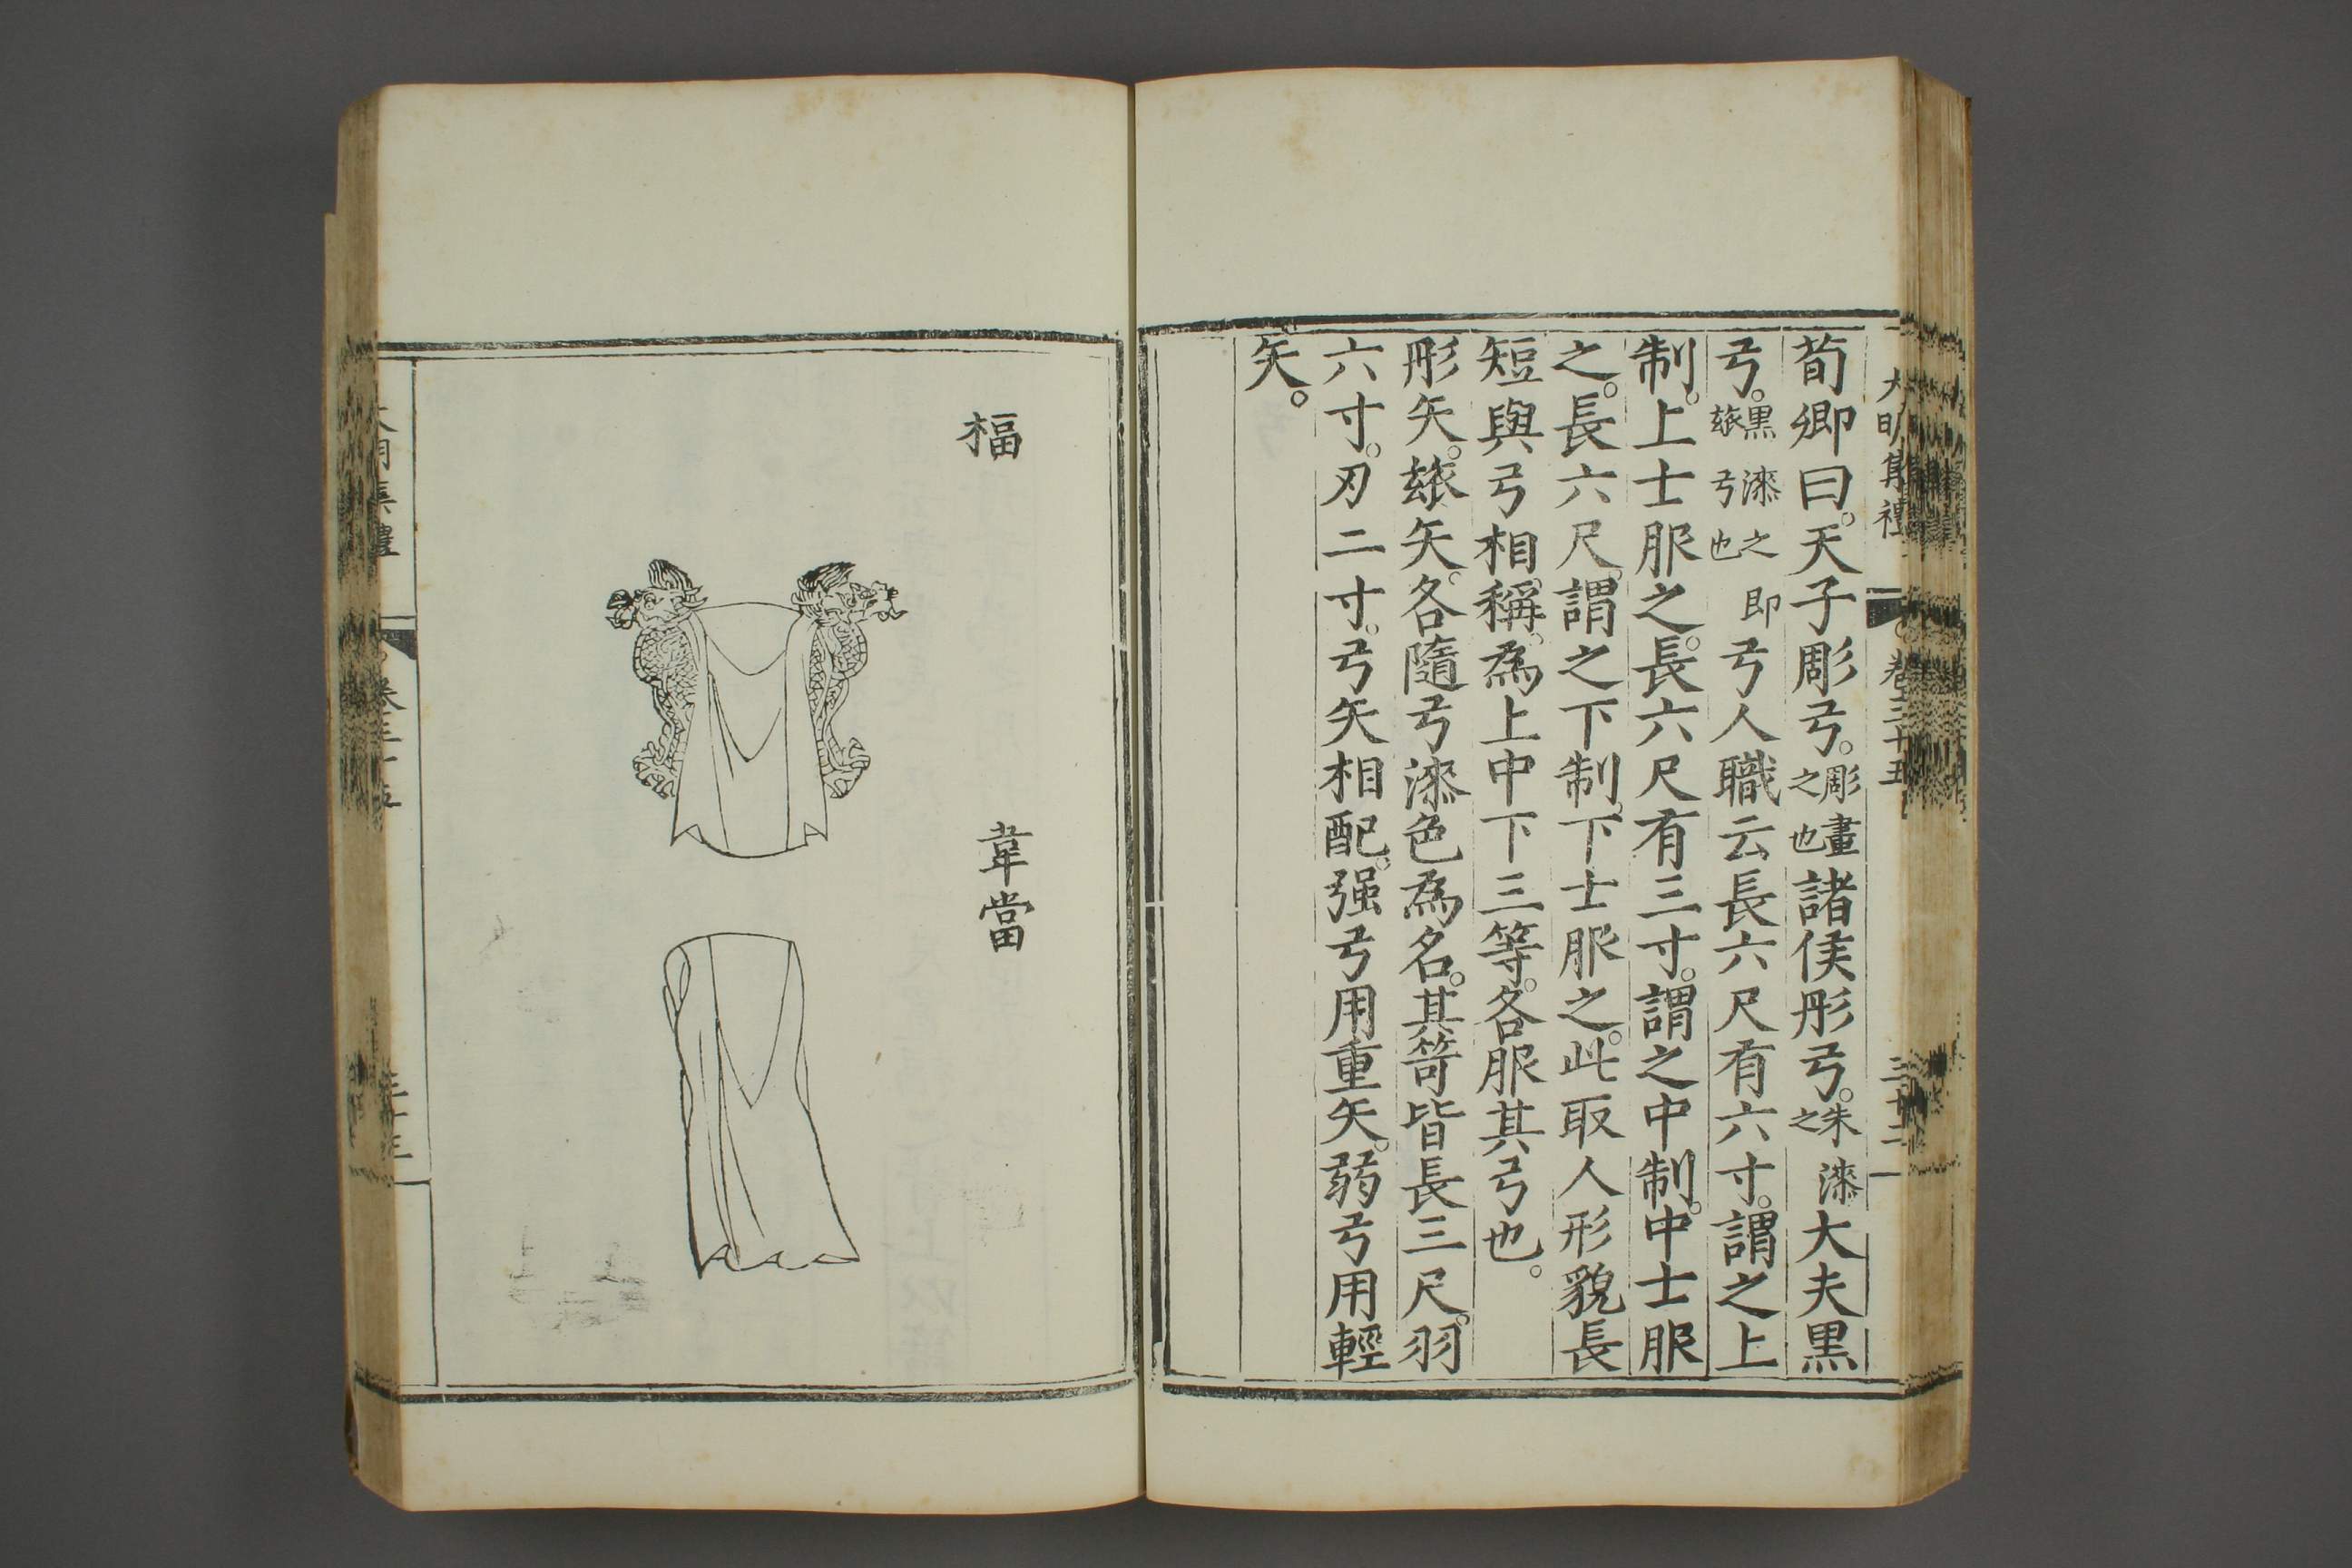 荀卿曰。天子彫弓。彫畫之也諸侯彤弓。朱漆之大夫黑
弓。黑漆之即玈弓也弓人職云長六尺有六寸。謂之上
制。上士服之。長六尺有三寸。謂之中制。中士服
之。長六尺。謂之下制。下士服之。此取人形貌長
短與弓相稱。為上中下三等。各服其弓也。
彤矢。玈矢。各隨弓漆色為名。其笴皆長三尺。羽
六寸。刃二寸。弓矢相配。强弓用重矢。弱弓用輕
矢。
大明集禮 卷三十五 三十二
楅
韋當
大明集禮 卷三十五 三十三